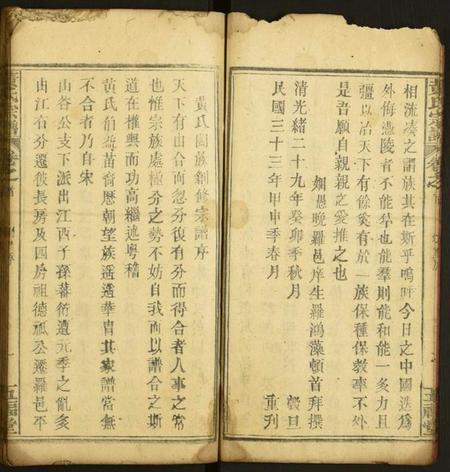 相流湊之謂族其在斯乎嗚呼今日之中國迭爲
外侮憑陵者不能羣也能羣則能和能一炙力且
疆以治天下有餘奚有於一族保種保教率不外
是吾願自親親之愛推之也
姻愚晚羅邑庠生羅鴻藻頓首拜撰
清光緒二十九年癸卯季秋月 穀旦
民國三十三年甲申季春月 重刊
黃氏闔族創修宗譜序
天下有山合而忽分復有分而得合者人事之常
也惟宗族處極分之勢不妨自我而以譜合之斯
道在權輿而功高繼述粵稽
黃氏伯益苗裔歷朝望族遥遥華冑其家譜當無
不合者乃自宋
山谷公支下派出江西子孫蕃衍遭元季之亂爰
由江右分遷彼長房及四房祖德孤公遷羅邑平
黃氏宗譜
卷之首
五福堂